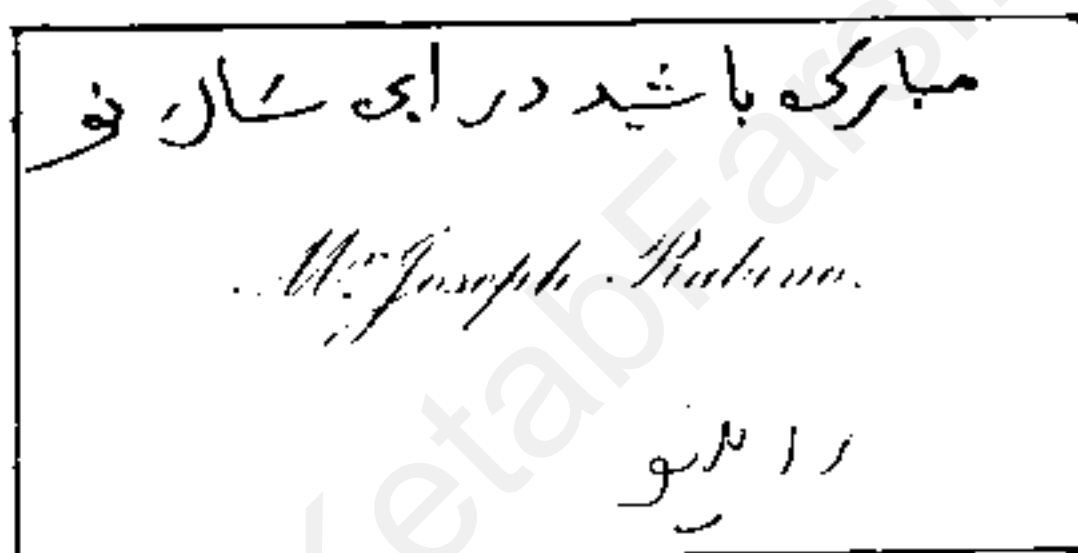 مبارک باشید در ای سال نو
Mr. Joseph Rabino.
رابینو